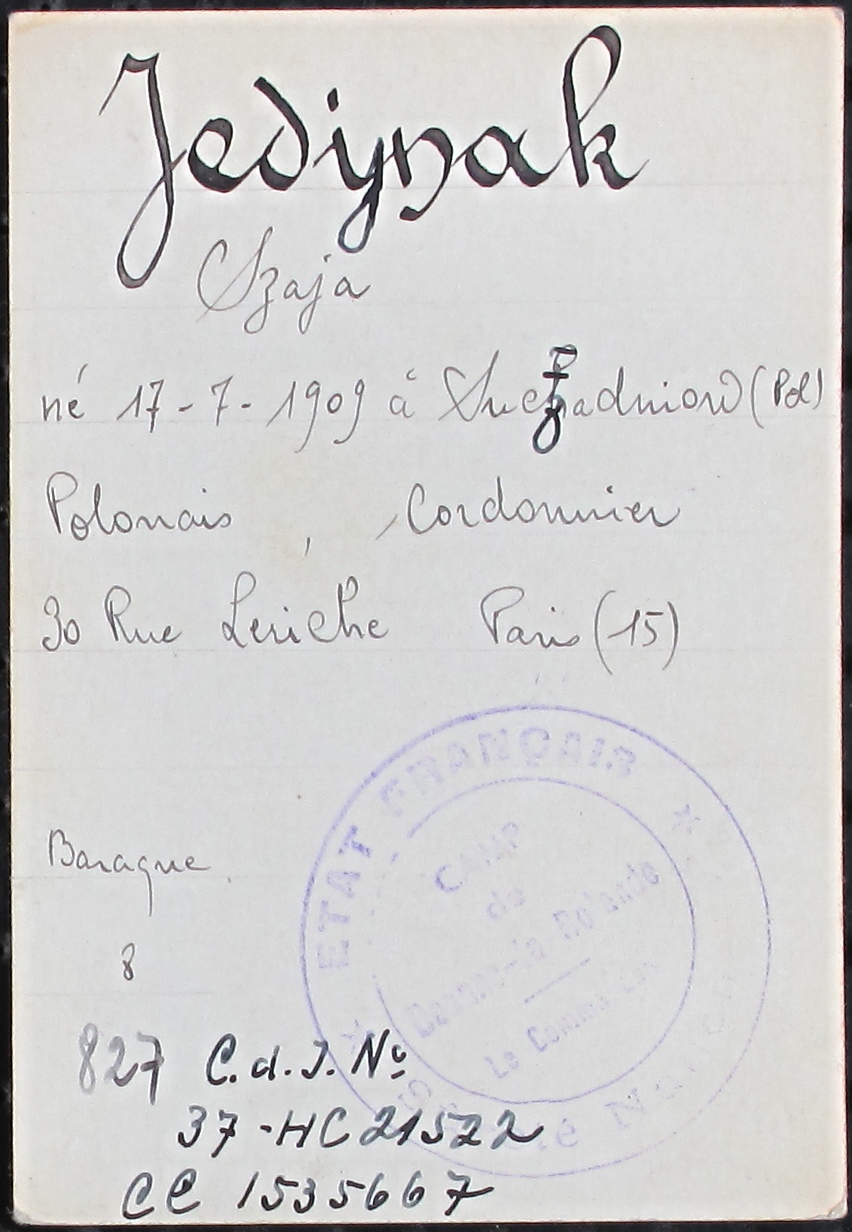 Jedynak
Szaja
né 17-7-1909 à Suchadniow (Pol)
Polonais , Cordonnier
30 Rue Leriche Paris (15)
Baraque
8
ETAT FRANÇAIS
CAMP
de
Beaune-la-Rolande
Le Commandant
827 C.d.I. Nº
37-HC 21522
CC 1535667